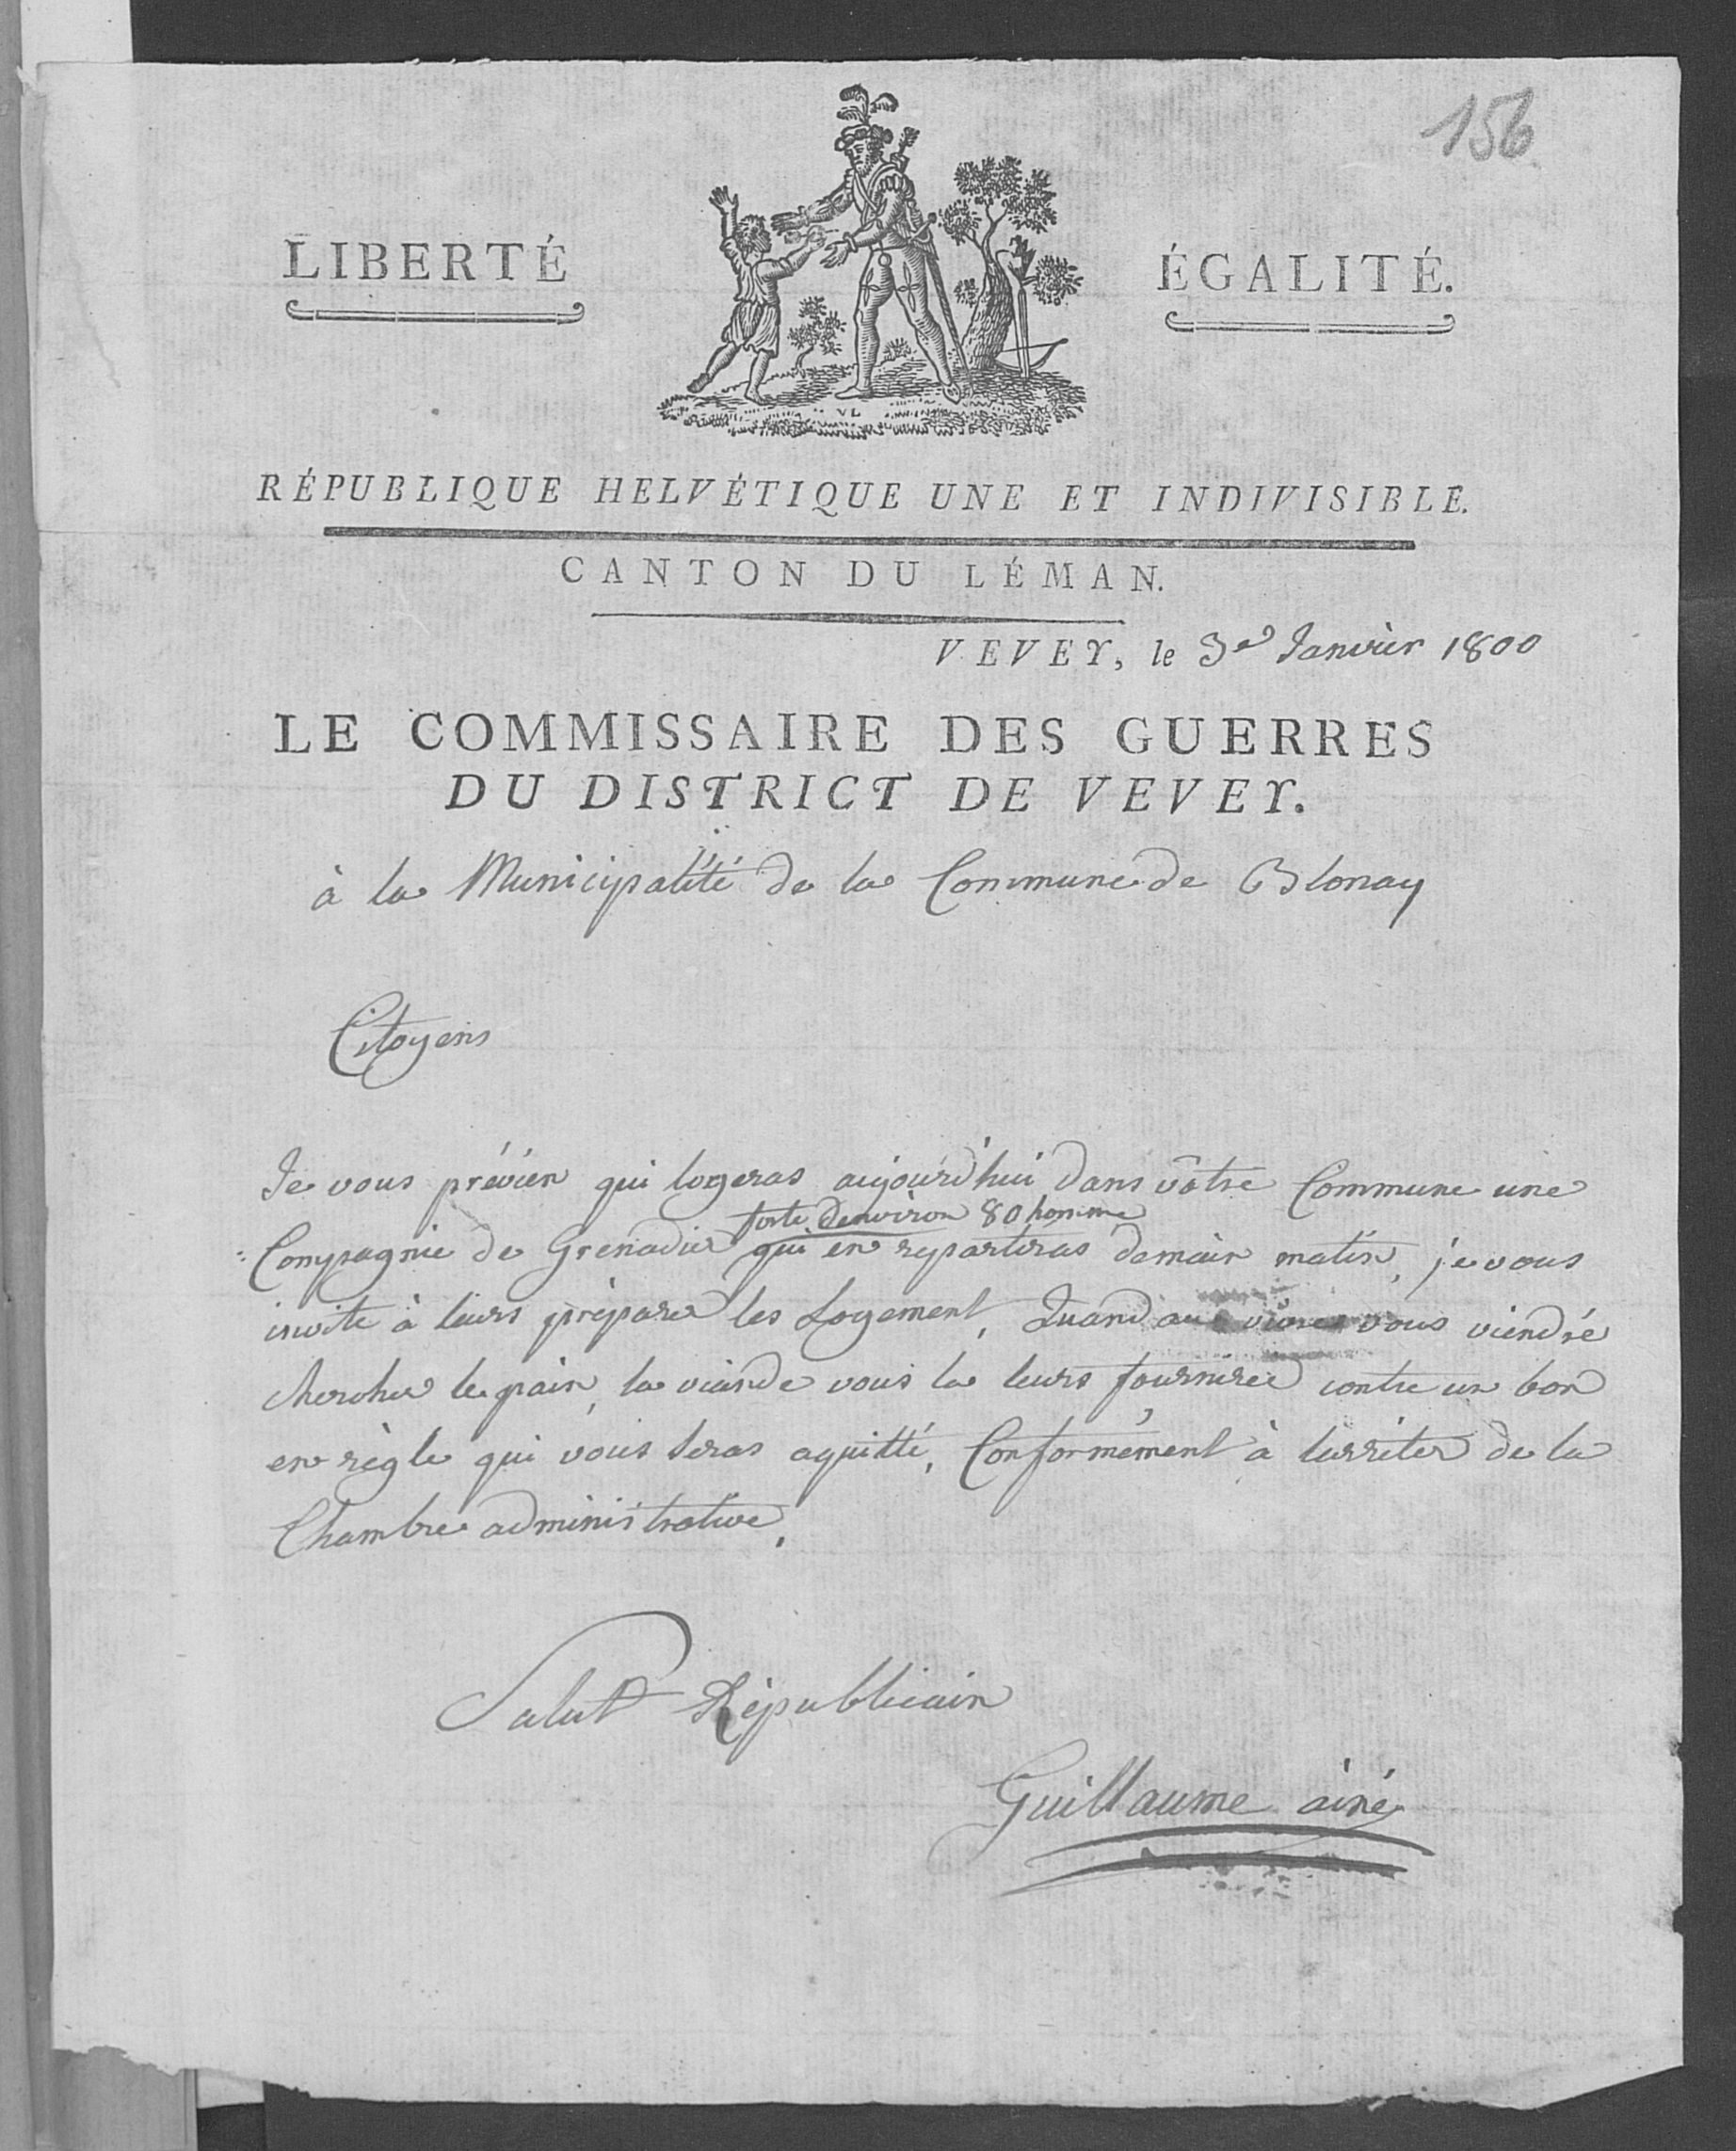 156
LIBERTÉ
ÉGALITÉ.
VL
RÉPUBLIQUE HELVÉTIQUE UNE ET INDIVISIBLE.
CANTON DU LÉMAN.
VEVEY, le 3e Janvier 1800
LE COMMISSAIRE DES GUERRES
DU DISTRICT DE VEVEY.
à la Municipalité de la Commune de Blonay
Citoyens
Je vous prévien qui logeras aujourd'hui dans vôtre Commune une
forte denviron 80 homme
Compagnie de Grenadier qui en repartiras demain matin, je vous
invite à leurs préparer les Logement, Quand au vivres vous viendré
chercher le pain, la viande vous la leurs fourniree contre un bon
en règle qui vous seras aquitté, Conformément à larreter de la
Chambre administrative.
Salut Républicain
Guillaume ainé